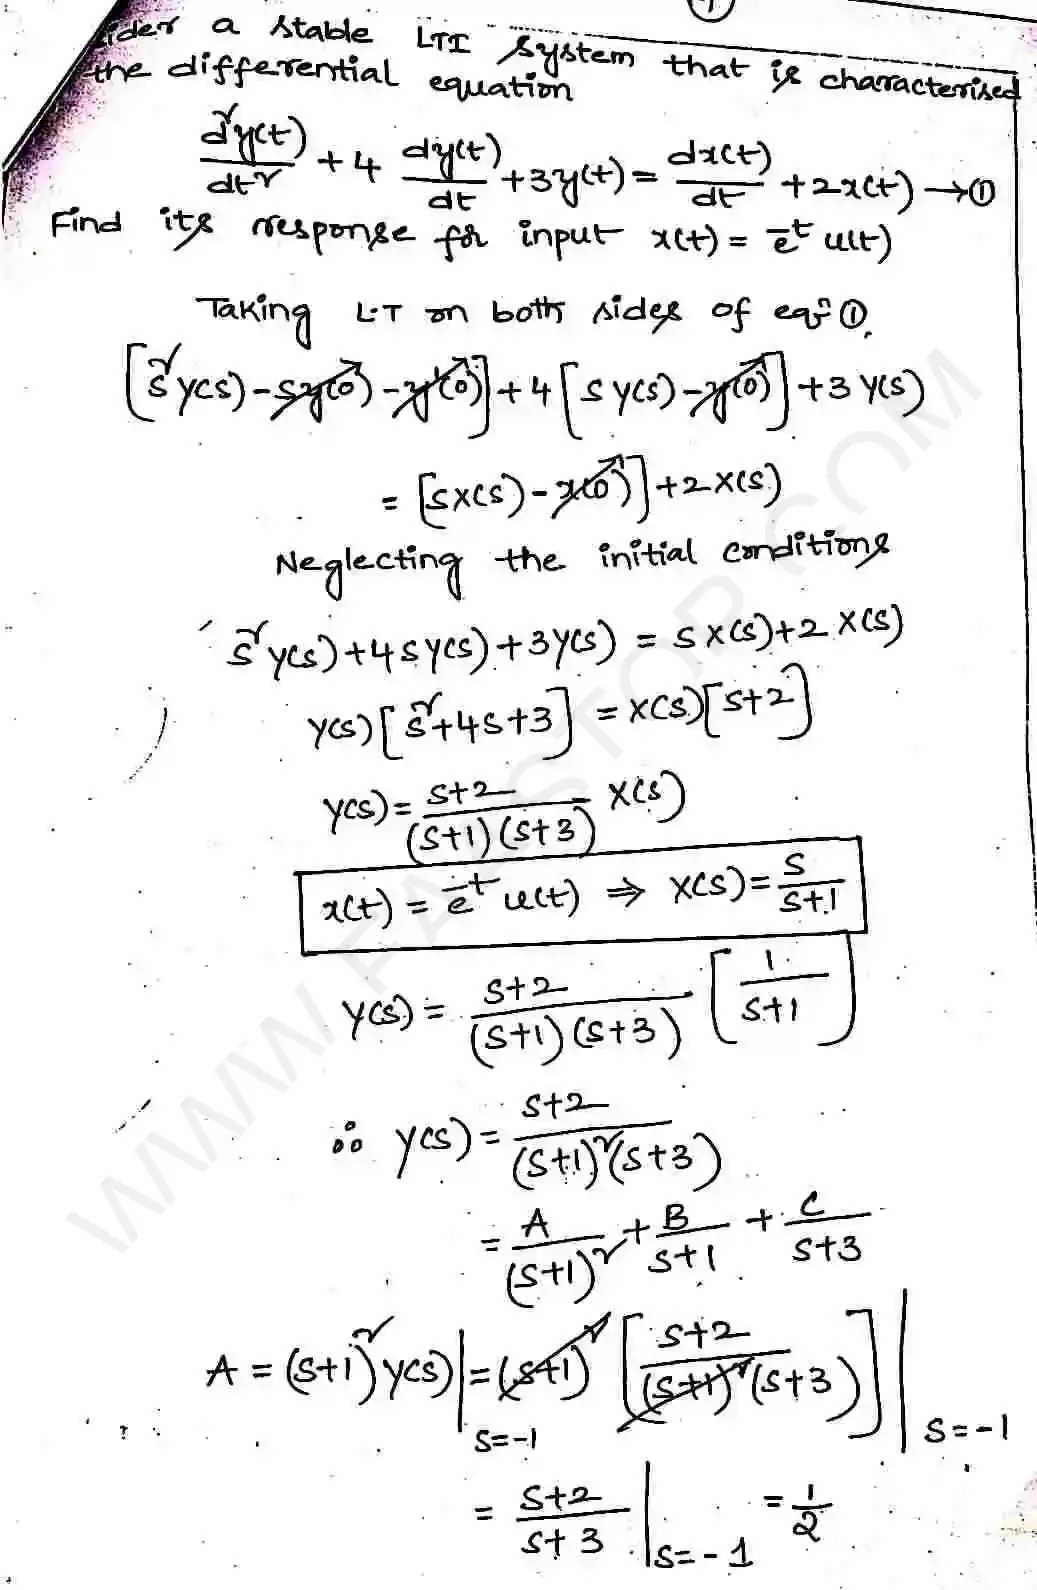 ider a stable LTI system that is characterised
the differential equation
d²y(t)/dt² + 4 dy(t)/dt + 3y(t) = dx(t)/dt + 2x(t) → ①
Find its response for input x(t) = e^-t u(t)
Taking L.T on both sides of eqn ①,
[s²Y(s) - sy(0) - y'(0)] + 4[sY(s) - y(0)] + 3Y(s)
= [sX(s) - x(0)] + 2X(s)
Neglecting the initial conditions
s²Y(s) + 4sY(s) + 3Y(s) = sX(s) + 2X(s)
Y(s)[s² + 4s + 3] = X(s)[s+2]
Y(s) = s+2/(s+1)(s+3) X(s)
x(t) = e^-t u(t) ⇒ X(s) = s/s+1
Y(s) = s+2/(s+1)(s+3) [1/s+1]
∴ Y(s) = s+2/(s+1)²(s+3)
= A/(s+1)² + B/s+1 + C/s+3
A = (s+1)² Y(s)|s=-1 = (s+1)² [s+2/(s+1)²(s+3)]|s=-1
= s+2/s+3|s=-1 = 1/2